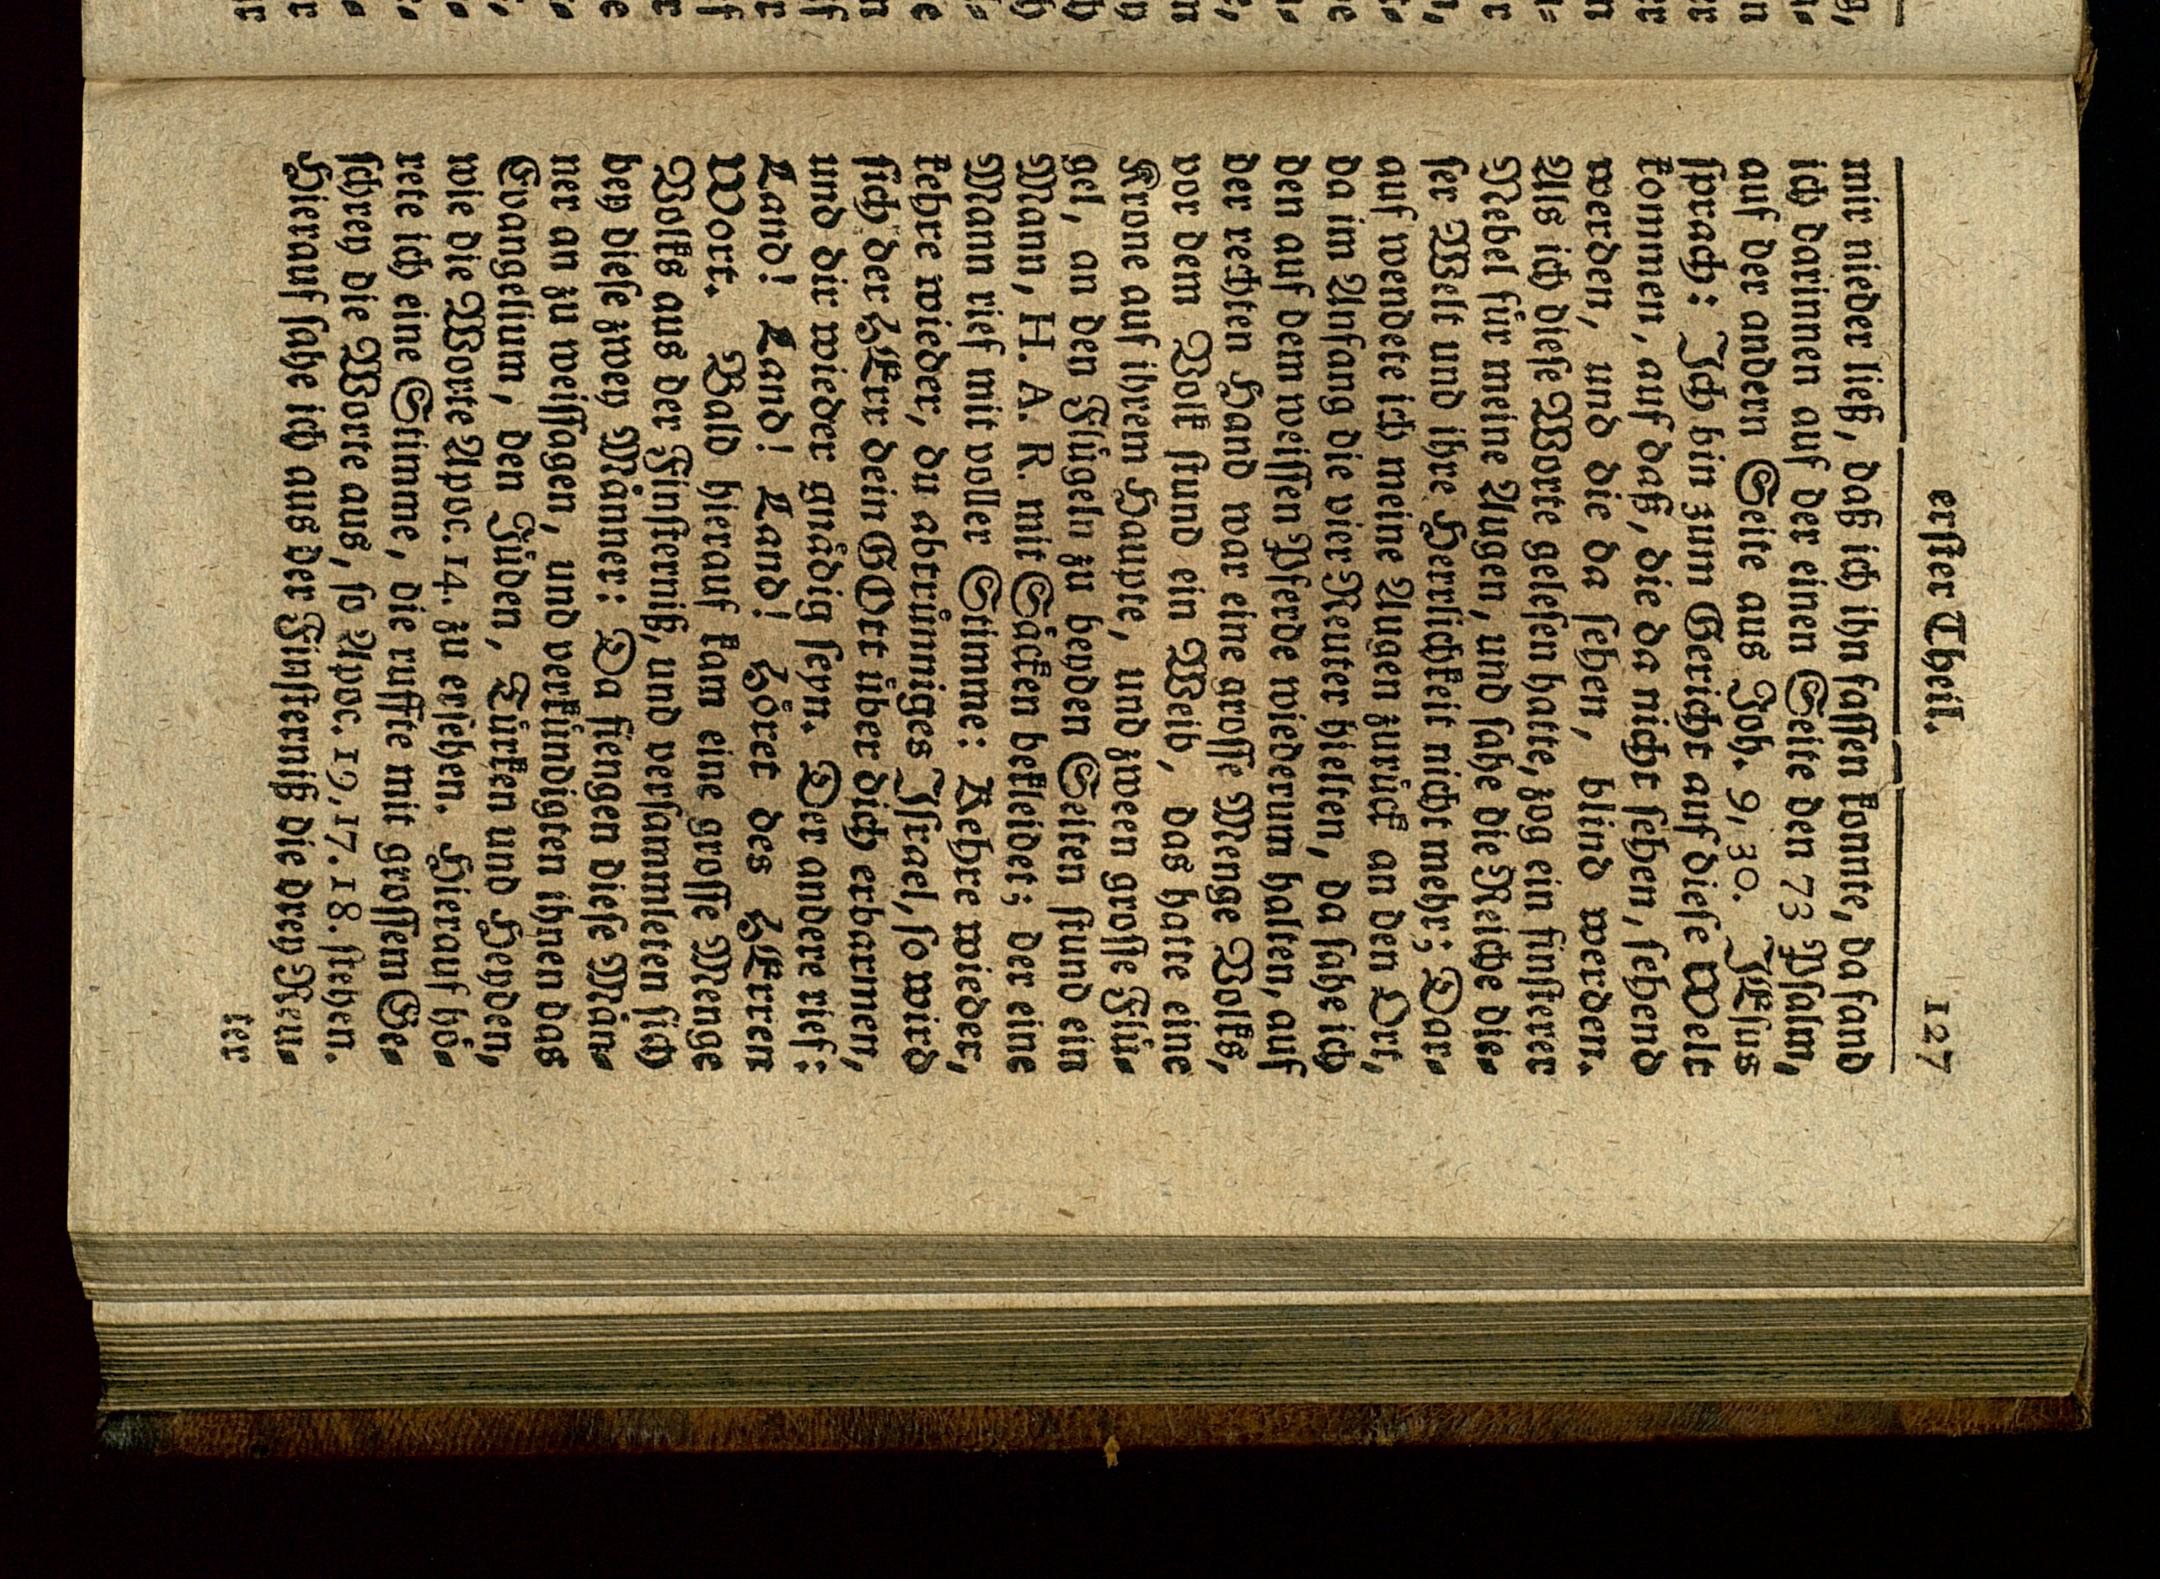 erſter Theil. 127
mir nieder ließ, daß ich ihn faſſen konnte, da fand
ich darinnen auf der einen Seite den 73 Pſalm,
auf der andern Seite aus Joh. 9, 30. JEſus
ſprach: Ich bin zum Gericht auf dieſe Welt
kommen, auf daß, die da nicht ſehen, ſehend
werden, und die da ſehen, blind werden.
Als ich dieſe Worte geleſen hatte, zog ein finſterer
Nebel für meine Augen, und ſahe die Reiche die-
ſer Welt und ihre Herrlichkeit nicht mehr; Dar-
auf wendete ich meine Augen zurück an den Ort,
da im Anfang die vier Reuter hielten, da ſahe ich
den auf dem weiſſen Pferde wiederum halten, auf
der rechten Hand war eine groſſe Menge Volks,
vor dem Volk ſtund ein Weib, das hatte eine
Krone auf ihrem Haupte, und zween groſſe Flü-
gel, an den Flügeln zu beyden Seiten ſtund ein
Mann, H. A. R. mit Säcken bekleidet; der eine
Mann rief mit voller Stimme: Kehre wieder,
kehre wieder, du abtrünniges Iſrael, ſo wird
ſich der HErr dein GOtt über dich erbarmen,
und dir wieder gnädig ſeyn. Der andere rief:
Land! Land! Land! Land! Höret des HErren
Wort. Bald hierauf kam eine groſſe Menge
Volks aus der Finſterniß, und verſammleten ſich
bey dieſe zwey Männer: Da fiengen dieſe Män-
ner an zu weiſſagen, und verkündigten ihnen das
Evangelium, den Jüden, Türken und Heyden,
wie die Worte Apoc. 14. zu erſehen. Hierauf hö-
rete ich eine Stimme, die ruffte mit groſſem Ge-
ſchrey die Worte aus, ſo Apoc. 19, 17. 18. ſtehen.
Hierauf ſahe ich aus der Finſterniß die drey Reu-
ter